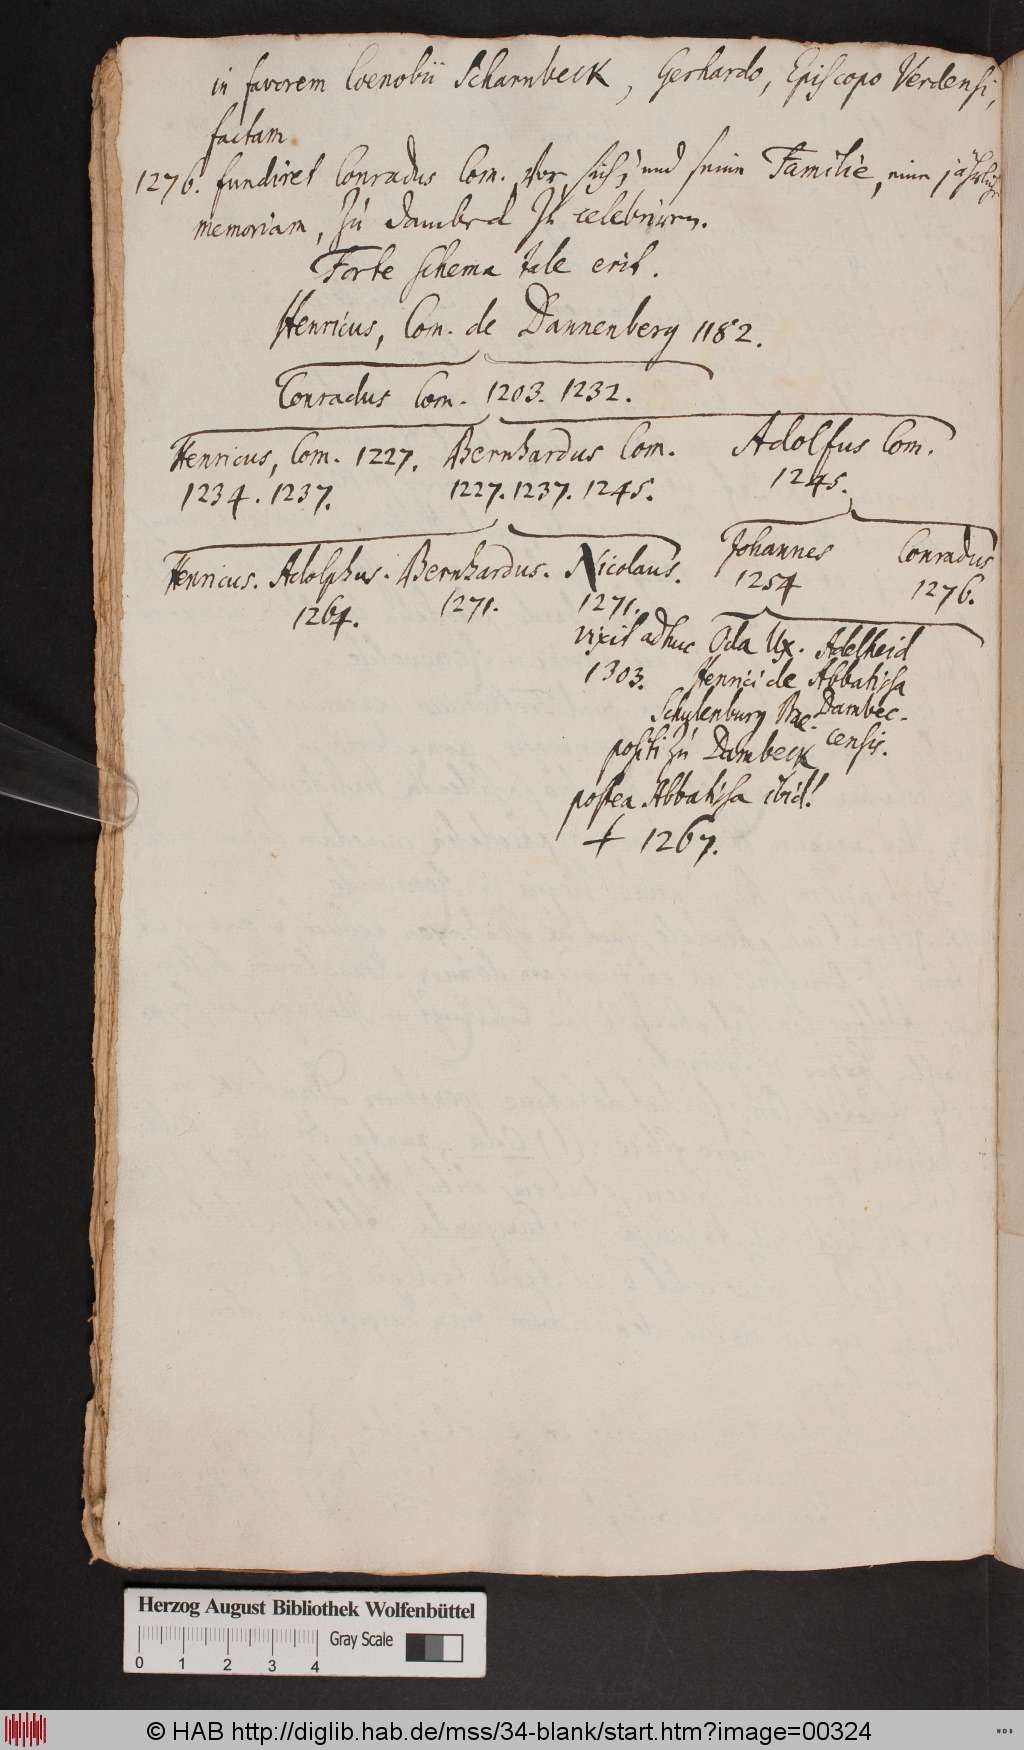 in favorem Coenobii Scharnbeck, Gerhardo, Episcopo Verdensi,
factam
1276. fundiret Conradus Com. vor sich, und seine Familie, eine jährliche
memoriam, zu Dambeck zu celebriren.
Forte schema tale erit.
Henricus, Com. de Dannenberg 1182.
Conradus Com. 1203. 1232.
Henricus, Com. 1227. Bernhardus Com. Adolfus Com.
1234. 1237. 1227. 1237. 1245. 1245.
Henricus. Adolphus. Bernhardus. Nicolaus. Johannes Conradus
1264. 1271. 1271. 1254 1276.
vixit adhuc Oda Ux. Adelheid
1303. Henrici de Abbatissa
Schulenburg Prae- Dambec-
positi zu Dambeck censis.
postea Abbatissa ibid.
† 1267.
Herzog August Bibliothek Wolfenbüttel
Gray Scale
0 1 2 3 4
© HAB http://diglib.hab.de/mss/34-blank/start.htm?image=00324